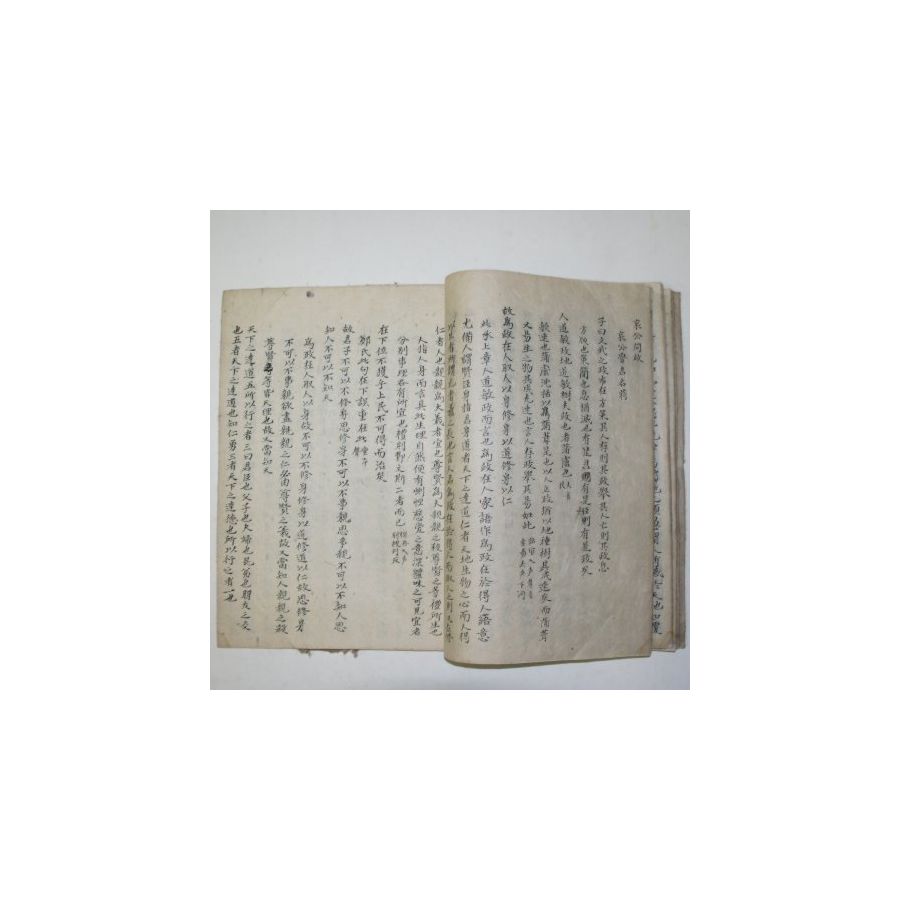 哀公問政
哀公魯君名蔣
子曰文武之政布在方策其人存則其政擧其人亡則其政息
方版也策簡也息猶滅也有是君有是臣則有是政矣
人道敏政地道敏樹夫政也者蒲盧也
敏速也蒲盧沈括以爲蒲葦是也以人立政猶以地種樹其成速矣而蒲葦
又易生之物其成尤速也言人存政擧其易如此
故爲政在人取人以身修身以道修道以仁
此承上章人道敏政而言也爲政在人家語作爲政在於得人語意
尤備人謂賢臣身指君身道者天下之達道仁者天地生物之心而人得
仁者人也親親爲大義者宜也尊賢爲大親親之殺尊賢之等禮所生也
人指人身而言具此生理自然便有惻怛慈愛之意深體味之可見宜者
分別事理各有所宜也禮則節文斯二者而已
在下位不獲乎上民不可得而治矣
鄭氏此句在下誤重在此
故君子不可以不修身思修身不可以不事親思事親不可以不知人思
知人不可以不知天
爲政在人取人以身故不可以不修身修身以道修道以仁故思修身
不可以不事親欲盡親親之仁必由尊賢之義故又當知人親親之殺
尊賢之等皆天理也故又當知天
天下之達道五所以行之者三曰君臣也父子也夫婦也昆弟也朋友之交
也五者天下之達道也知仁勇三者天下之達德也所以行之者一也